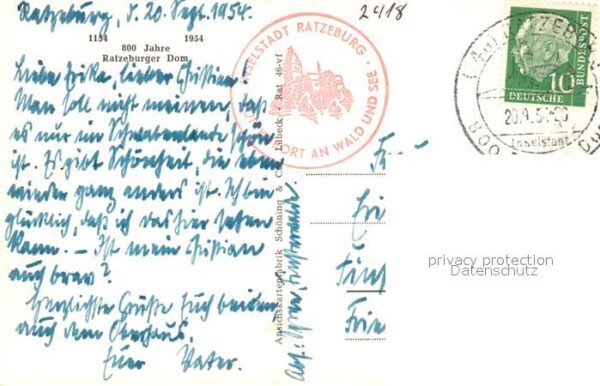 Ratzeburg, d. 20. Sept. 1954.
1154 1954
800 Jahre
Ratzeburger Dom
Liebe Erika, lieber Christian
Man soll nicht meinen, daß
es nur im Schwabenlande schön
ist. Es gibt Schönheit, die eben
wieder ganz anders ist. Ich bin
glücklich, daß ich das hier sehen
kann. – Ist mein Christian
auch brav?
Herzlichste Grüße Euch beiden
auch dem Oberhaus,
Euer Vater.
INSELSTADT RATZEBURG
ORT AN WALD UND SEE
2418
Ansichtskartenfabrik Schöning & Co., Lübeck Rat 46-VI
Abs.:
10
DEUTSCHE
BUNDESPOST
RATZEBURG
20.9.54
Inselstadt
800
Eri
privacy protection
Datenschutz